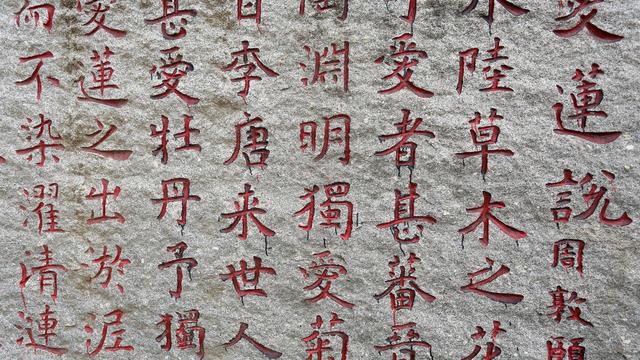 愛蓮說周敦頤
水陸草木之花
可愛者甚蕃晉
陶淵明獨愛菊
自李唐来世人
甚愛牡丹予獨
愛蓮之出淤泥
而不染濯清漣